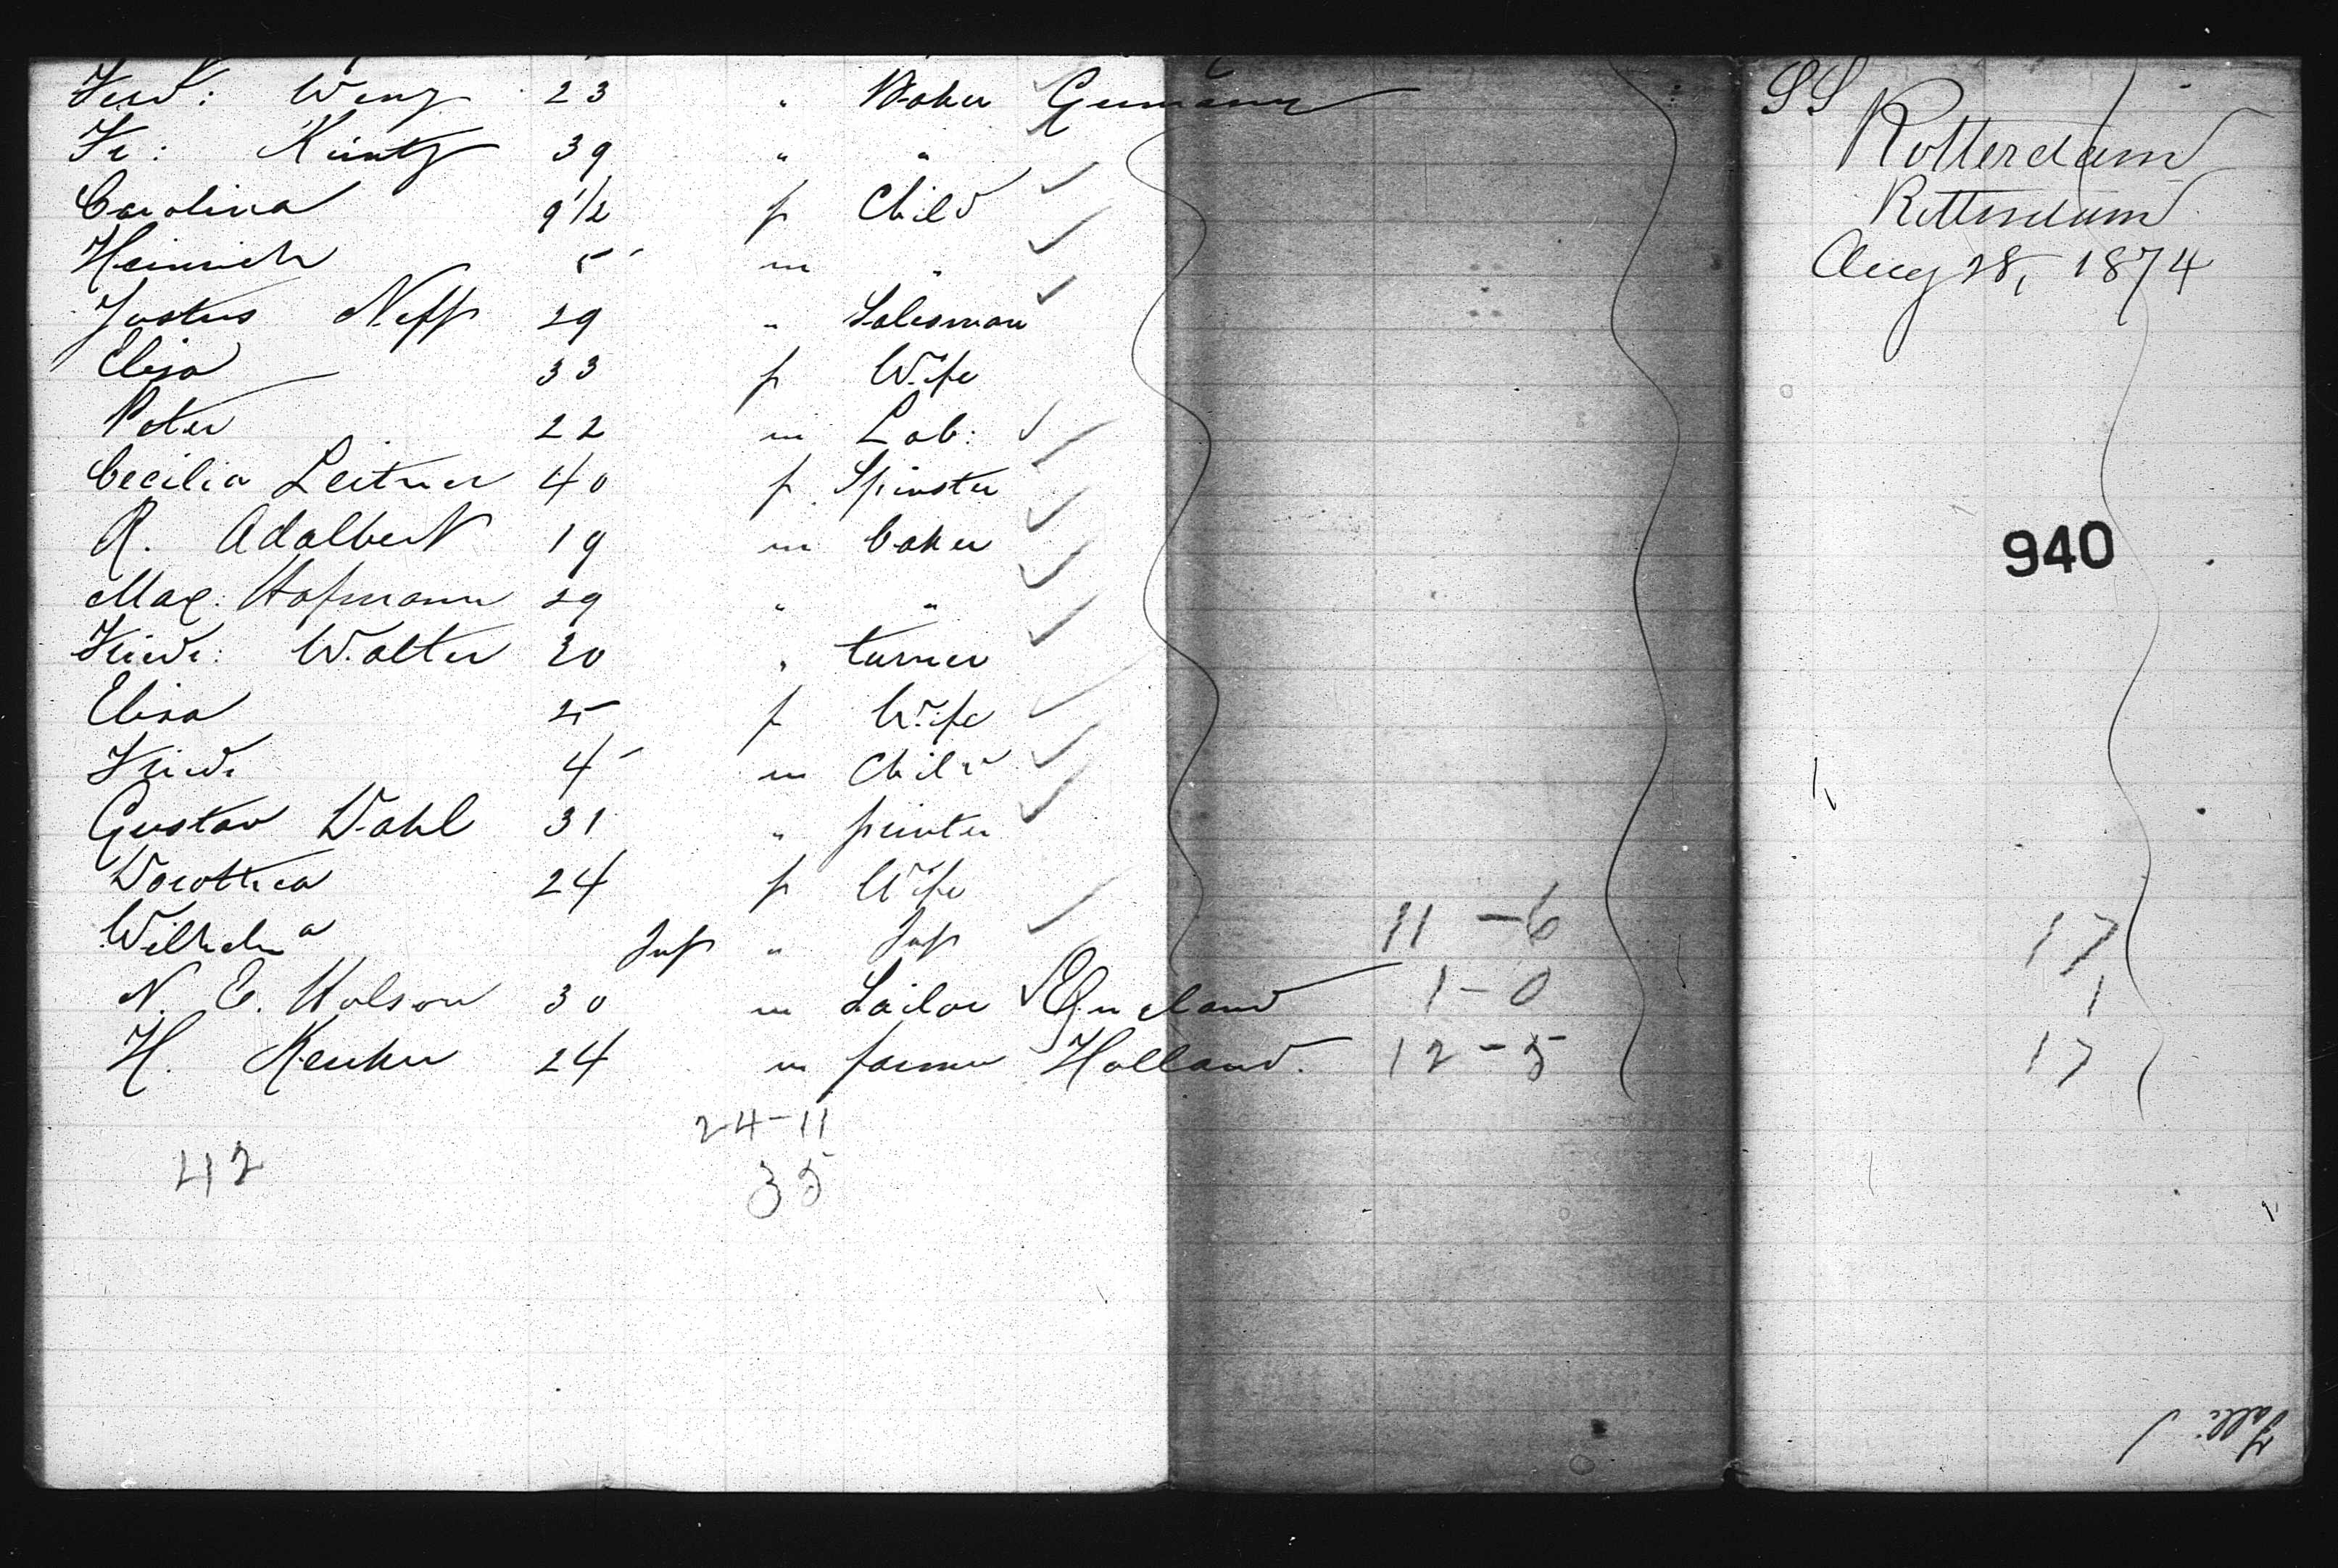 Ferd: Weng 23 " Baker Germany
Fr: Küntz 39 " "
Carolina 9 1/2 f Child
Heinrich 5 m "
Justus Neff 29 " Salesman
Elisa 33 f Wife
Peter 22 m Lab:
Cecilia Leitner 40 f Spinster
R. Adalbert 19 m baker
Max: Hofmann 29 " "
Friedr: Walter 30 " turner
Elisa 25 f Wife
Friedr 4 m Child
Gustav Dahl 31 " printer
Dorothea 24 f Wife
Wilhelma Inf " Inf
N. E. Holson 30 m Sailor England
H. Keuker 24 m farmer Holland.
24-11
42 35
11-6
1-0
12-5
SS
Rotterdam
Rotterdam
Aug 28, 1874
940
17
1
17